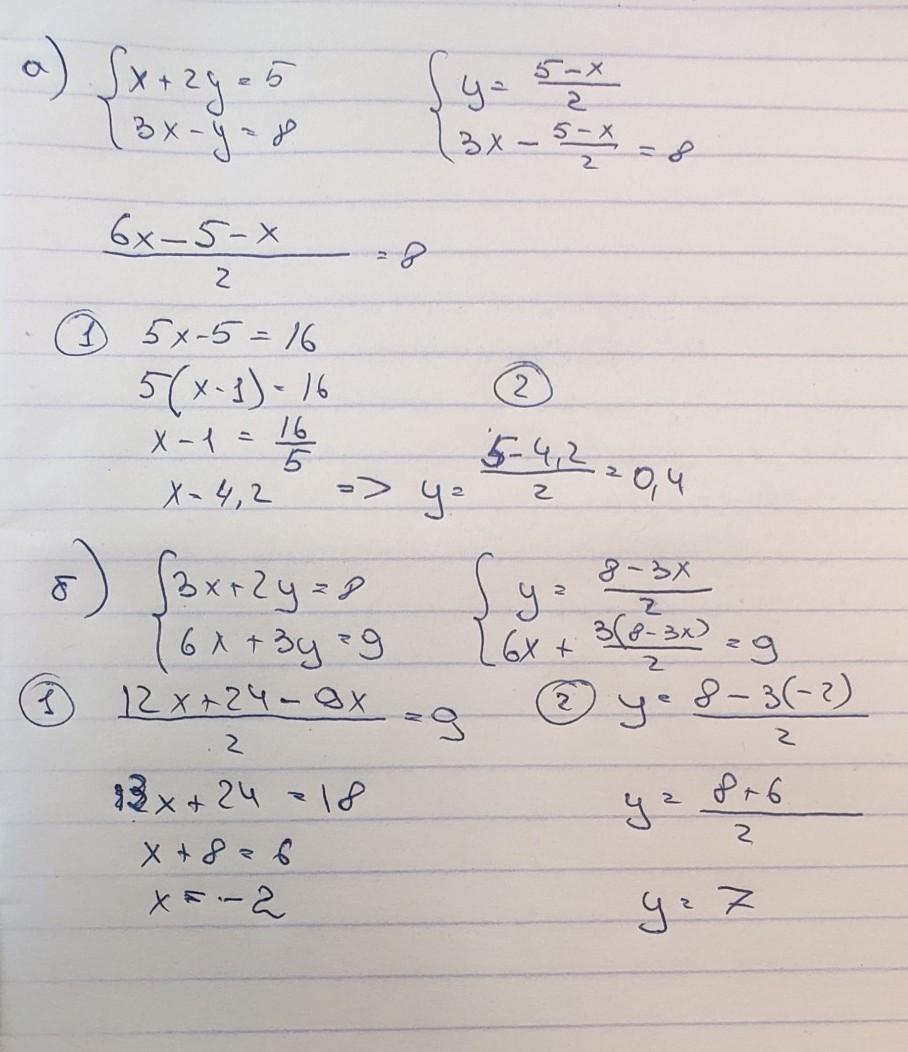 а) { x + 2y = 5 { y = (5 - x)/2
{ 3x - y = 8 { 3x - (5 - x)/2 = 8
(6x - 5 - x)/2 = 8
① 5x - 5 = 16
5(x - 1) = 16 ②
x - 1 = 16/5
x = 4,2 => y = (5 - 4,2)/2 = 0,4
б) { 3x + 2y = 8 { y = (8 - 3x)/2
{ 6x + 3y = 9 { 6x + 3(8 - 3x)/2 = 9
① (12x + 24 - 9x)/2 = 9 ② y = (8 - 3(-2))/2
3x + 24 = 18 y = (8 + 6)/2
x + 8 = 6
x = -2 y = 7